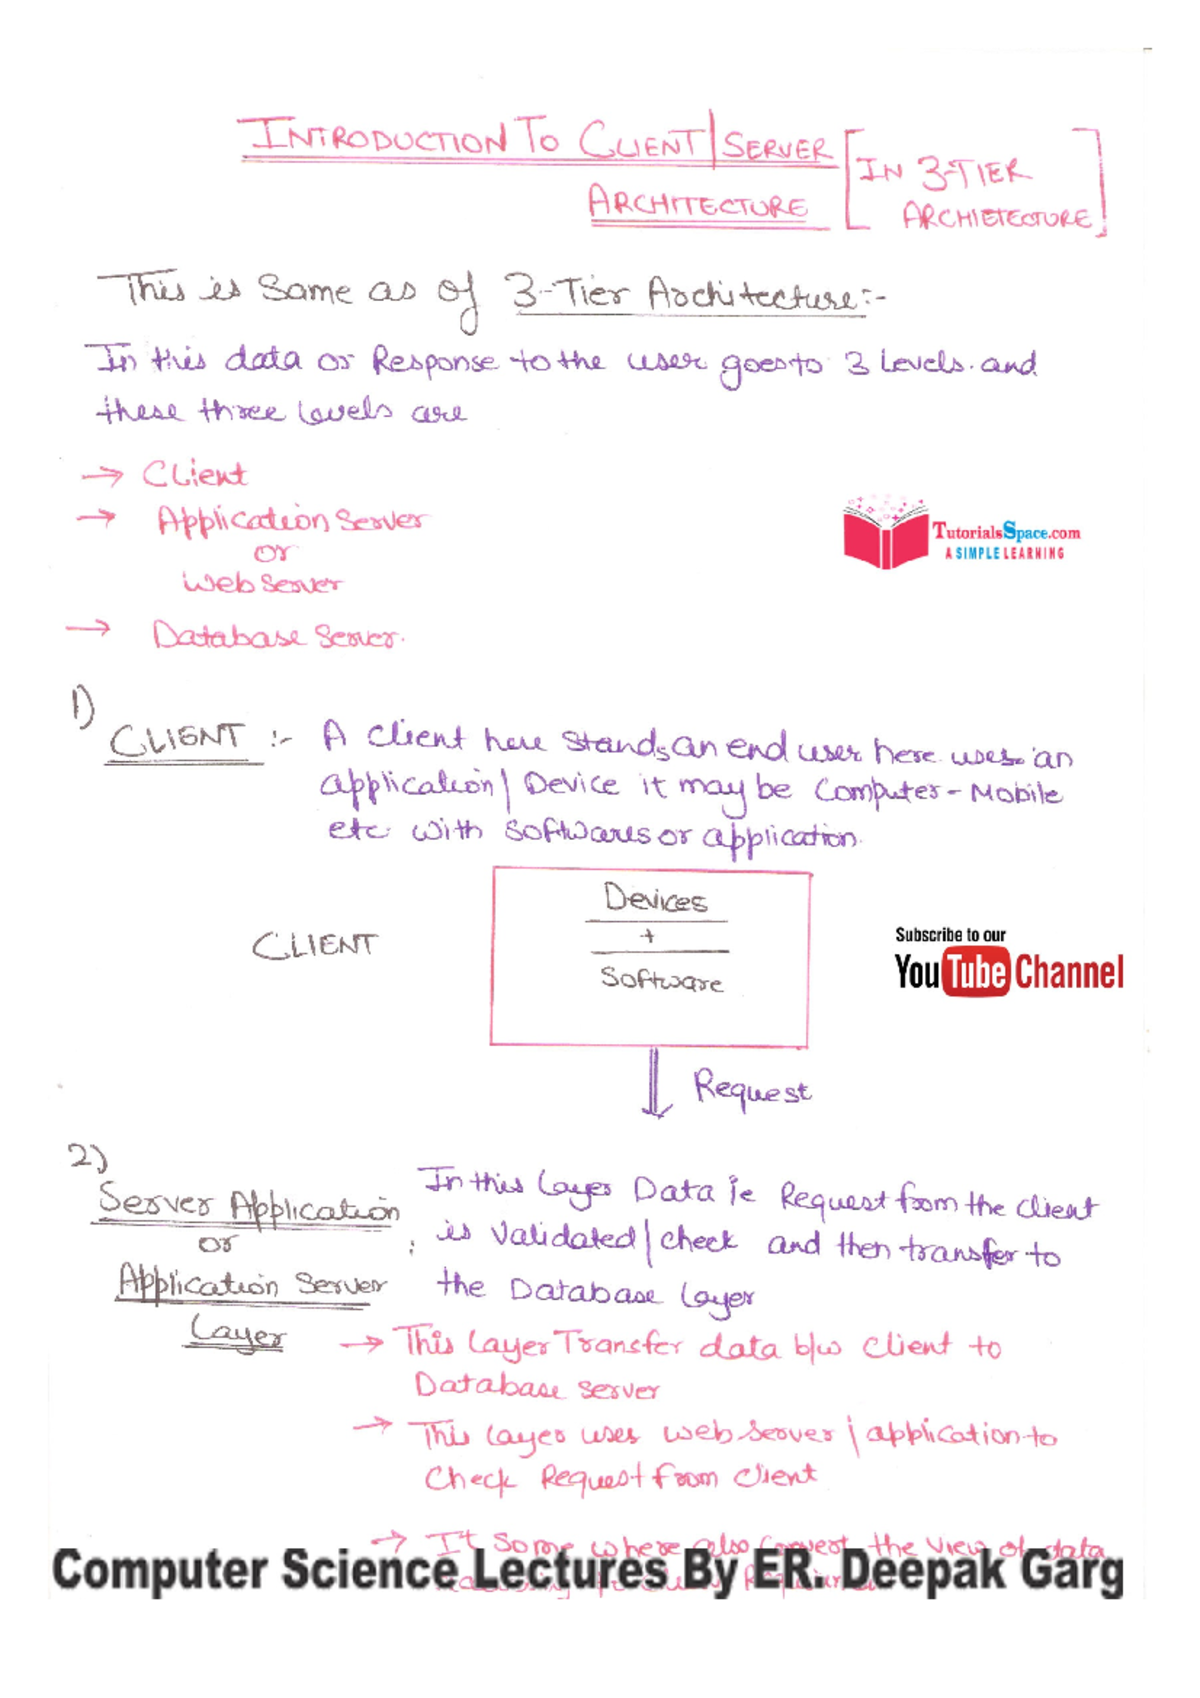 INTRODUCTION TO CLIENT|SERVER [IN 3-TIER
ARCHITECTURE ARCHIETECTURE]
This is Same as of 3-Tier Architecture:-
In this data or Response to the user goes to 3 Levels. and
these three Levels are
→ Client
→ Application Server
or
Web Server
→ Database Server.
TutorialsSpace.com
A SIMPLE LEARNING
1)
CLIENT :- A Client here stands an end user here uses an
application| Device it may be Computer - Mobile
etc. with Softwares or application.
Devices
+
Software
CLIENT
Subscribe to our
YouTube Channel
Request
2)
Server Application
or
Application Server
Layer
: In this Layer Data ie Request from the client
is validated|check and then transfer to
the Database Layer
→ This Layer Transfer data b/w client to
Database server
→ This Layer uses web server | application to
Check Request from client
→ It Some where also convert the view of data
Computer Science Lectures By ER. Deepak Garg